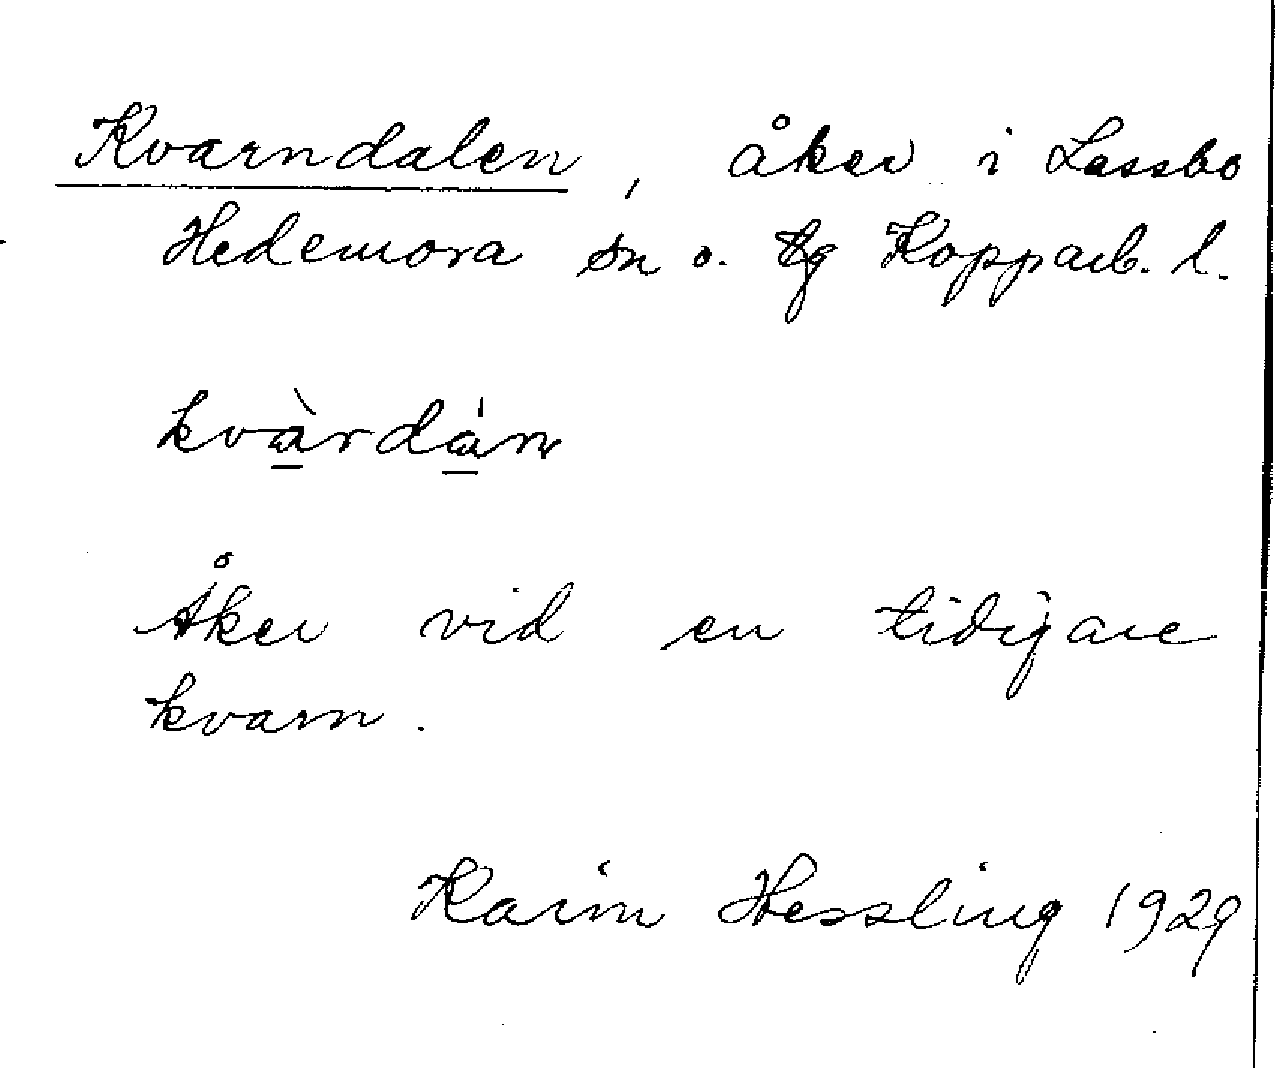 Kvarndalen, åker i Lassbo
Hedemora sn o. tg Kopparb. l.
kvàrdán
Åker vid en tidigare
kvarn.
Karin Hessling 1929